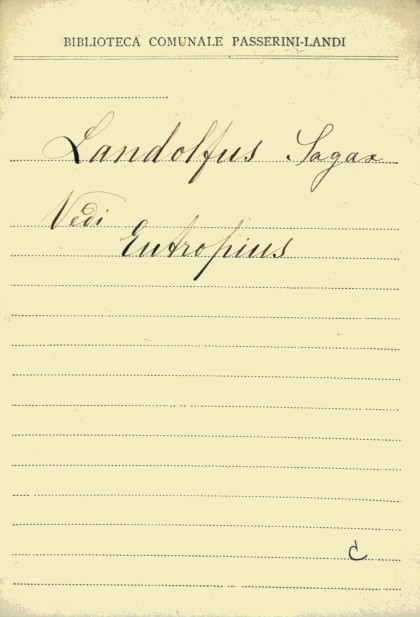 BIBLIOTECA COMUNALE PASSERINI-LANDI
Landolfus Sagax
Vedi
Eutropius
C